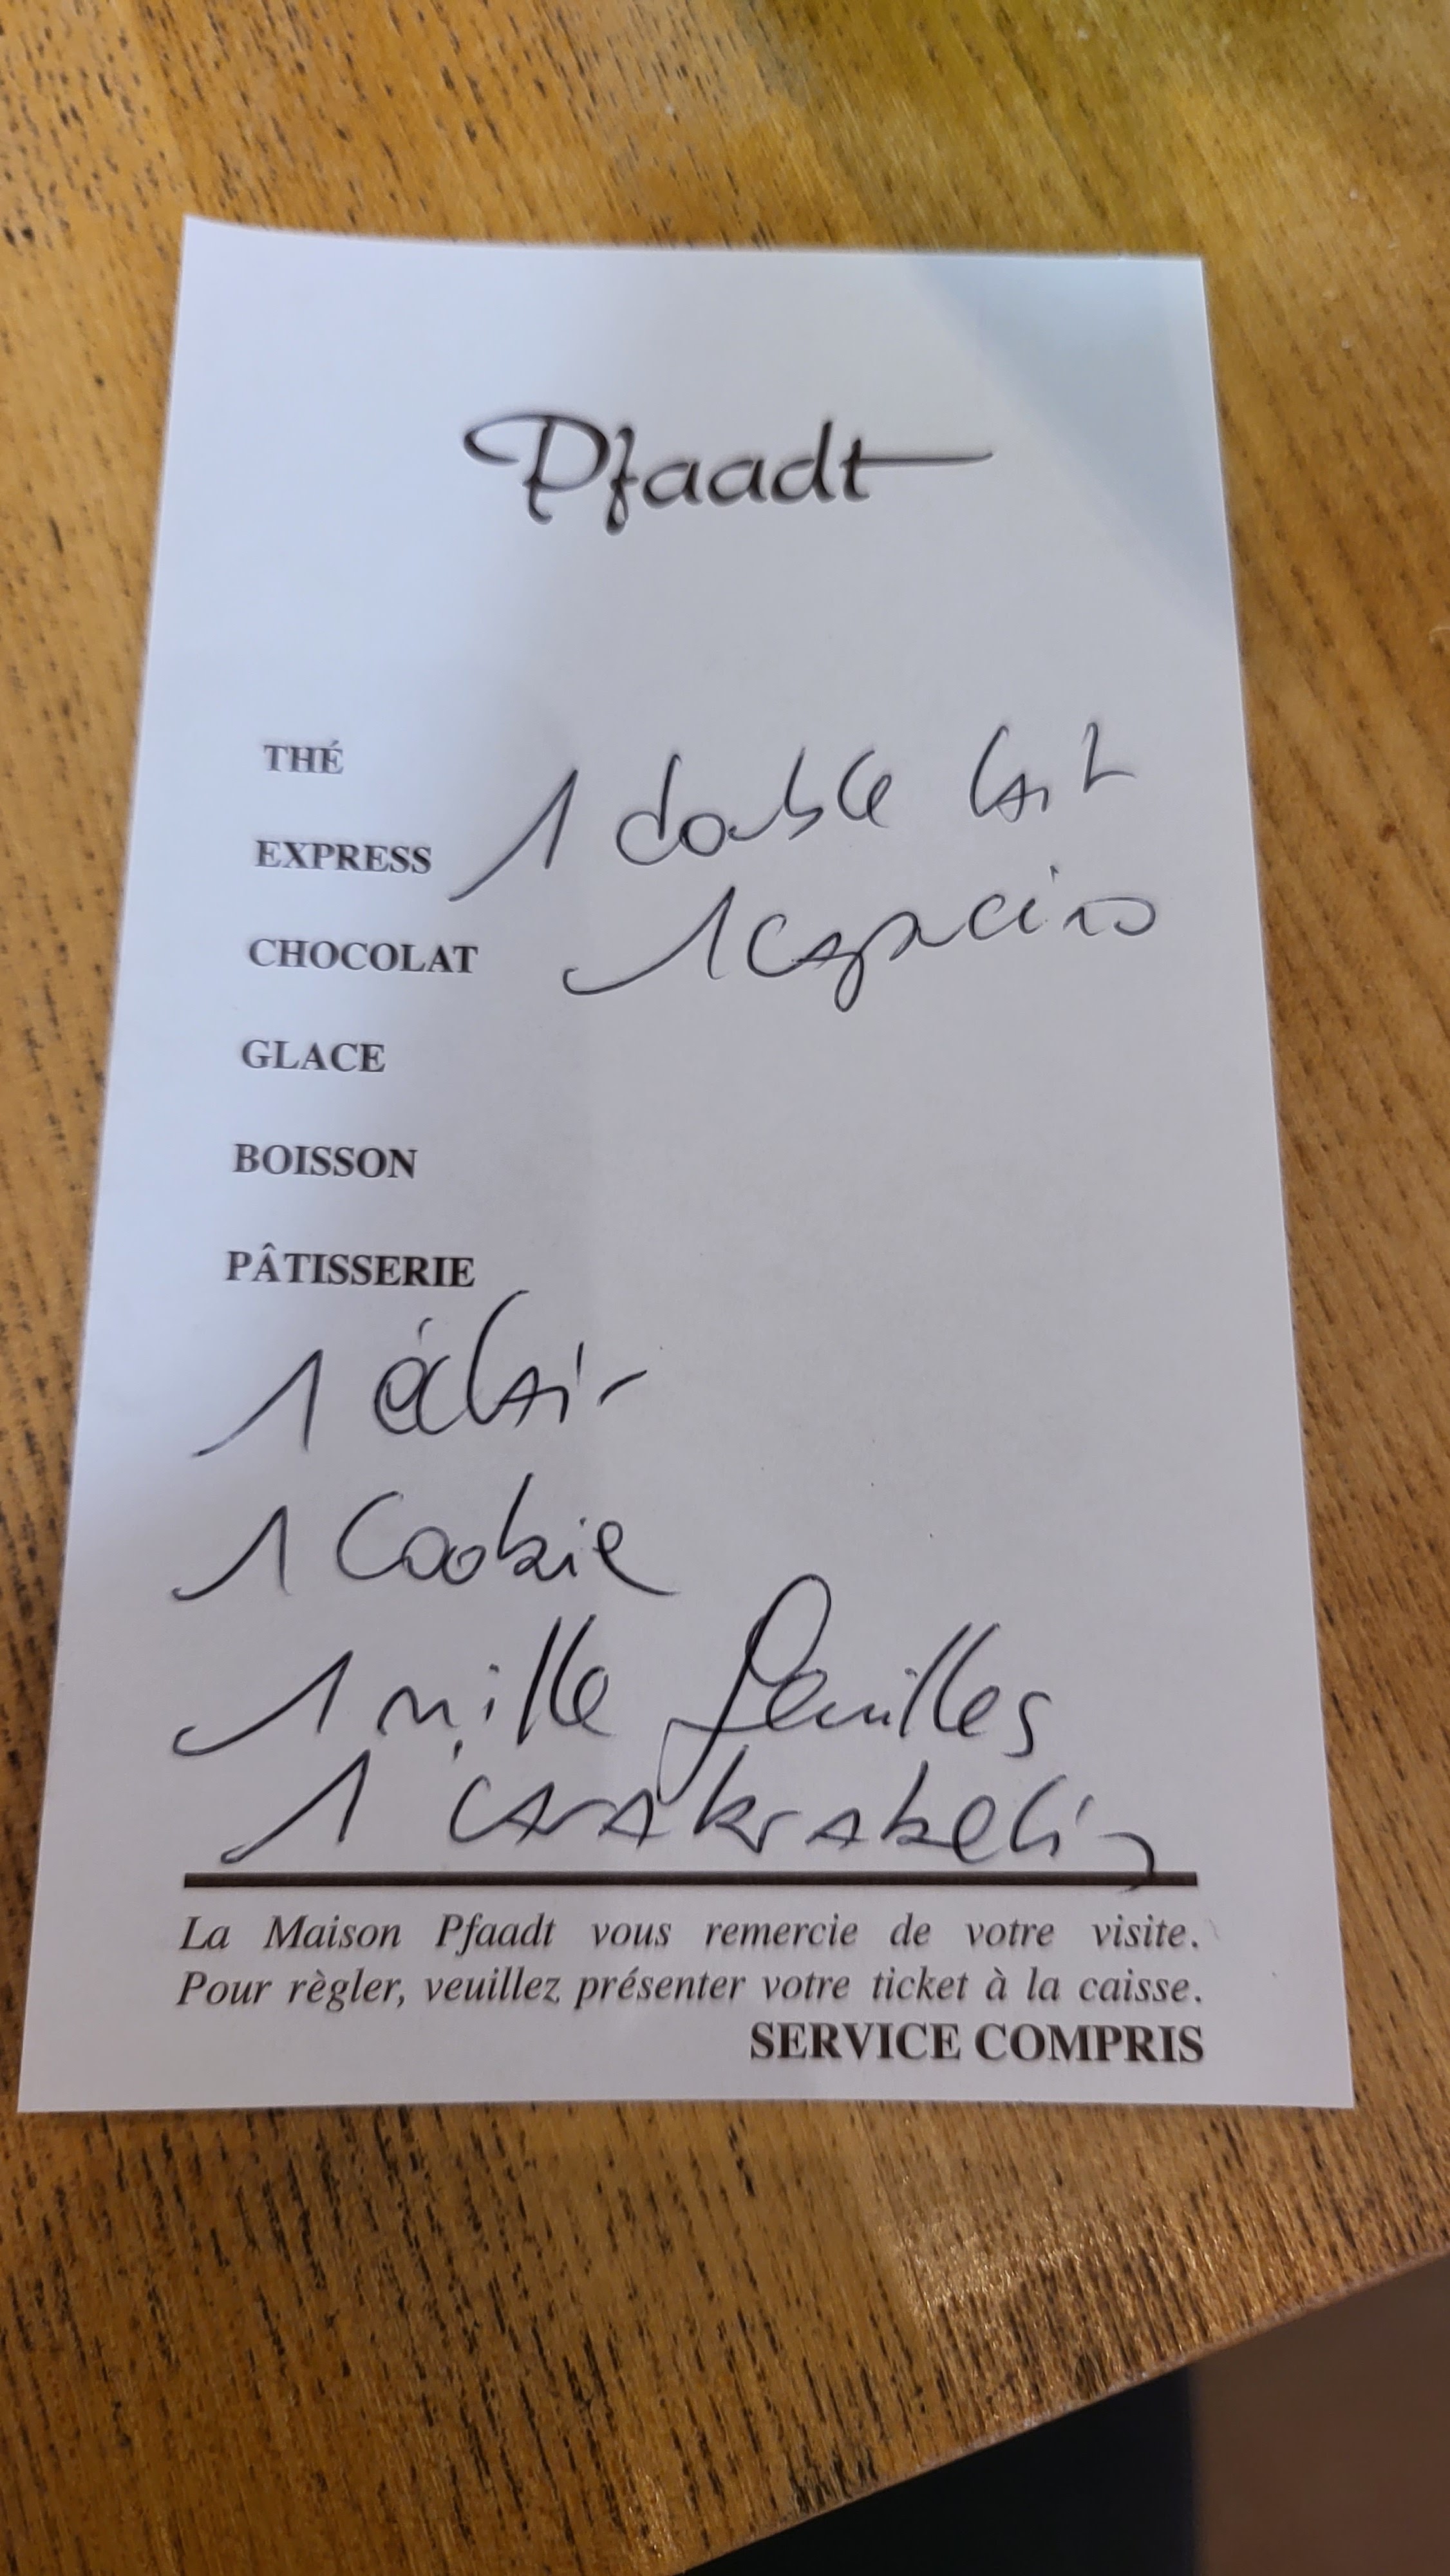 Pfaadt
THÉ
1 double lait
EXPRESS
1 capucino
CHOCOLAT
GLACE
BOISSON
PÂTISSERIE
1 éclair
1 Cookie
1 mille feuilles
1
La Maison Pfaadt vous remercie de votre visite.
Pour règler, veuillez présenter votre ticket à la caisse.
SERVICE COMPRIS